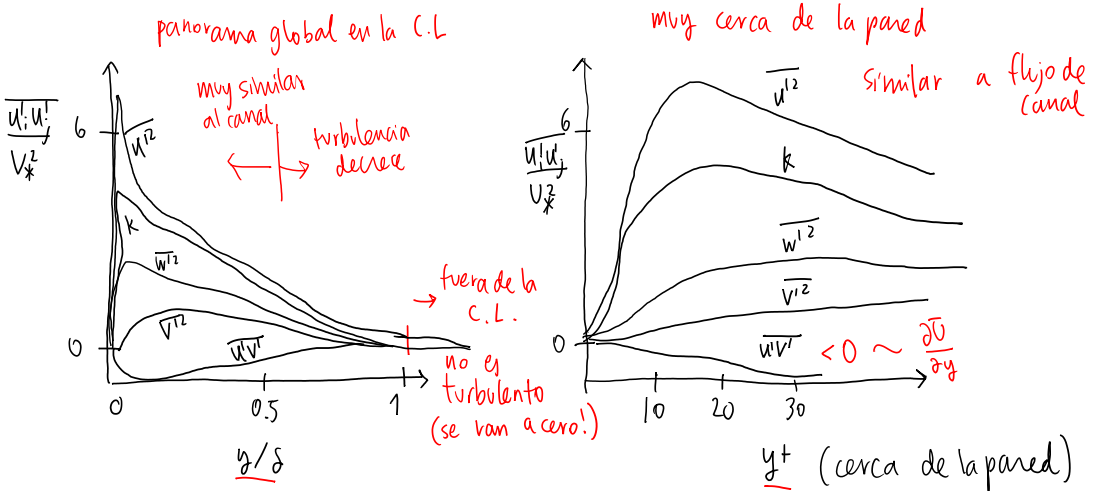 panorama global en la C.L
muy similar
al canal
turbulencia
decrece
u'i u'j
V*²
6
u'²
k
w'²
v'²
u'v'
0
fuera de la
C.L.
no es
turbulento
(se van a cero!)
0 0.5 1
y/δ
muy cerca de la pared
similar a flujo de
canal
u'i u'j
U*²
6
u'²
k
w'²
v'²
u'v' <0 ~ ∂U/∂y
0
10 20 30
y+ (cerca de la pared)